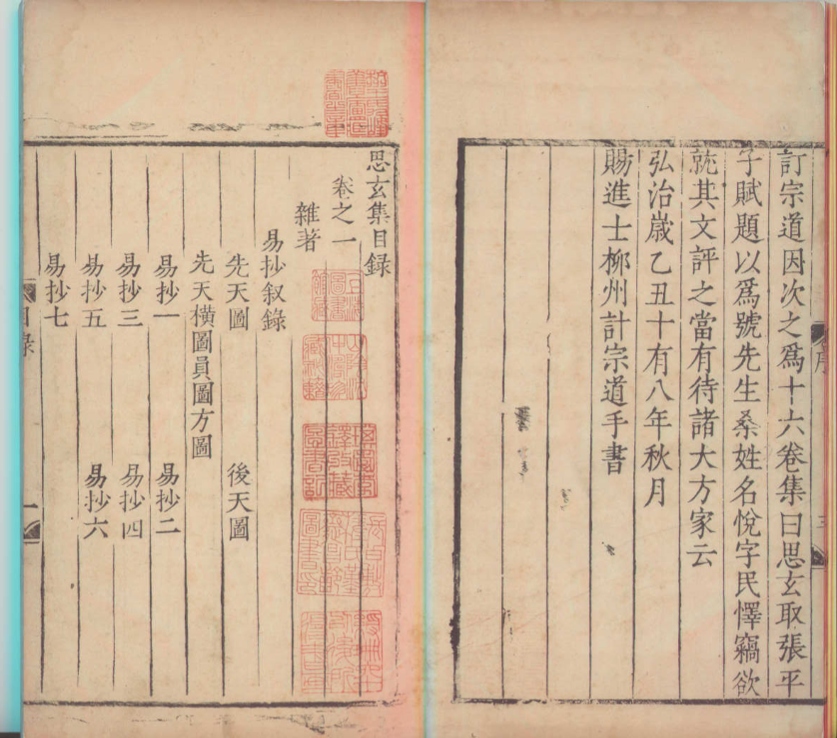 訂宗道因次之爲十六卷集曰思玄取張平
子賦題以爲號先生桑姓名悅字民懌竊欲
就其文評之當有待諸大方家云
弘治歲乙丑十有八年秋月
賜進士柳州計宗道手書
序
思玄集目錄
卷之一
雜著
易抄叙錄
先天圖 後天圖
先天橫圖員圖方圖
易抄一 易抄二
易抄三 易抄四
易抄五 易抄六
易抄七
目錄
一